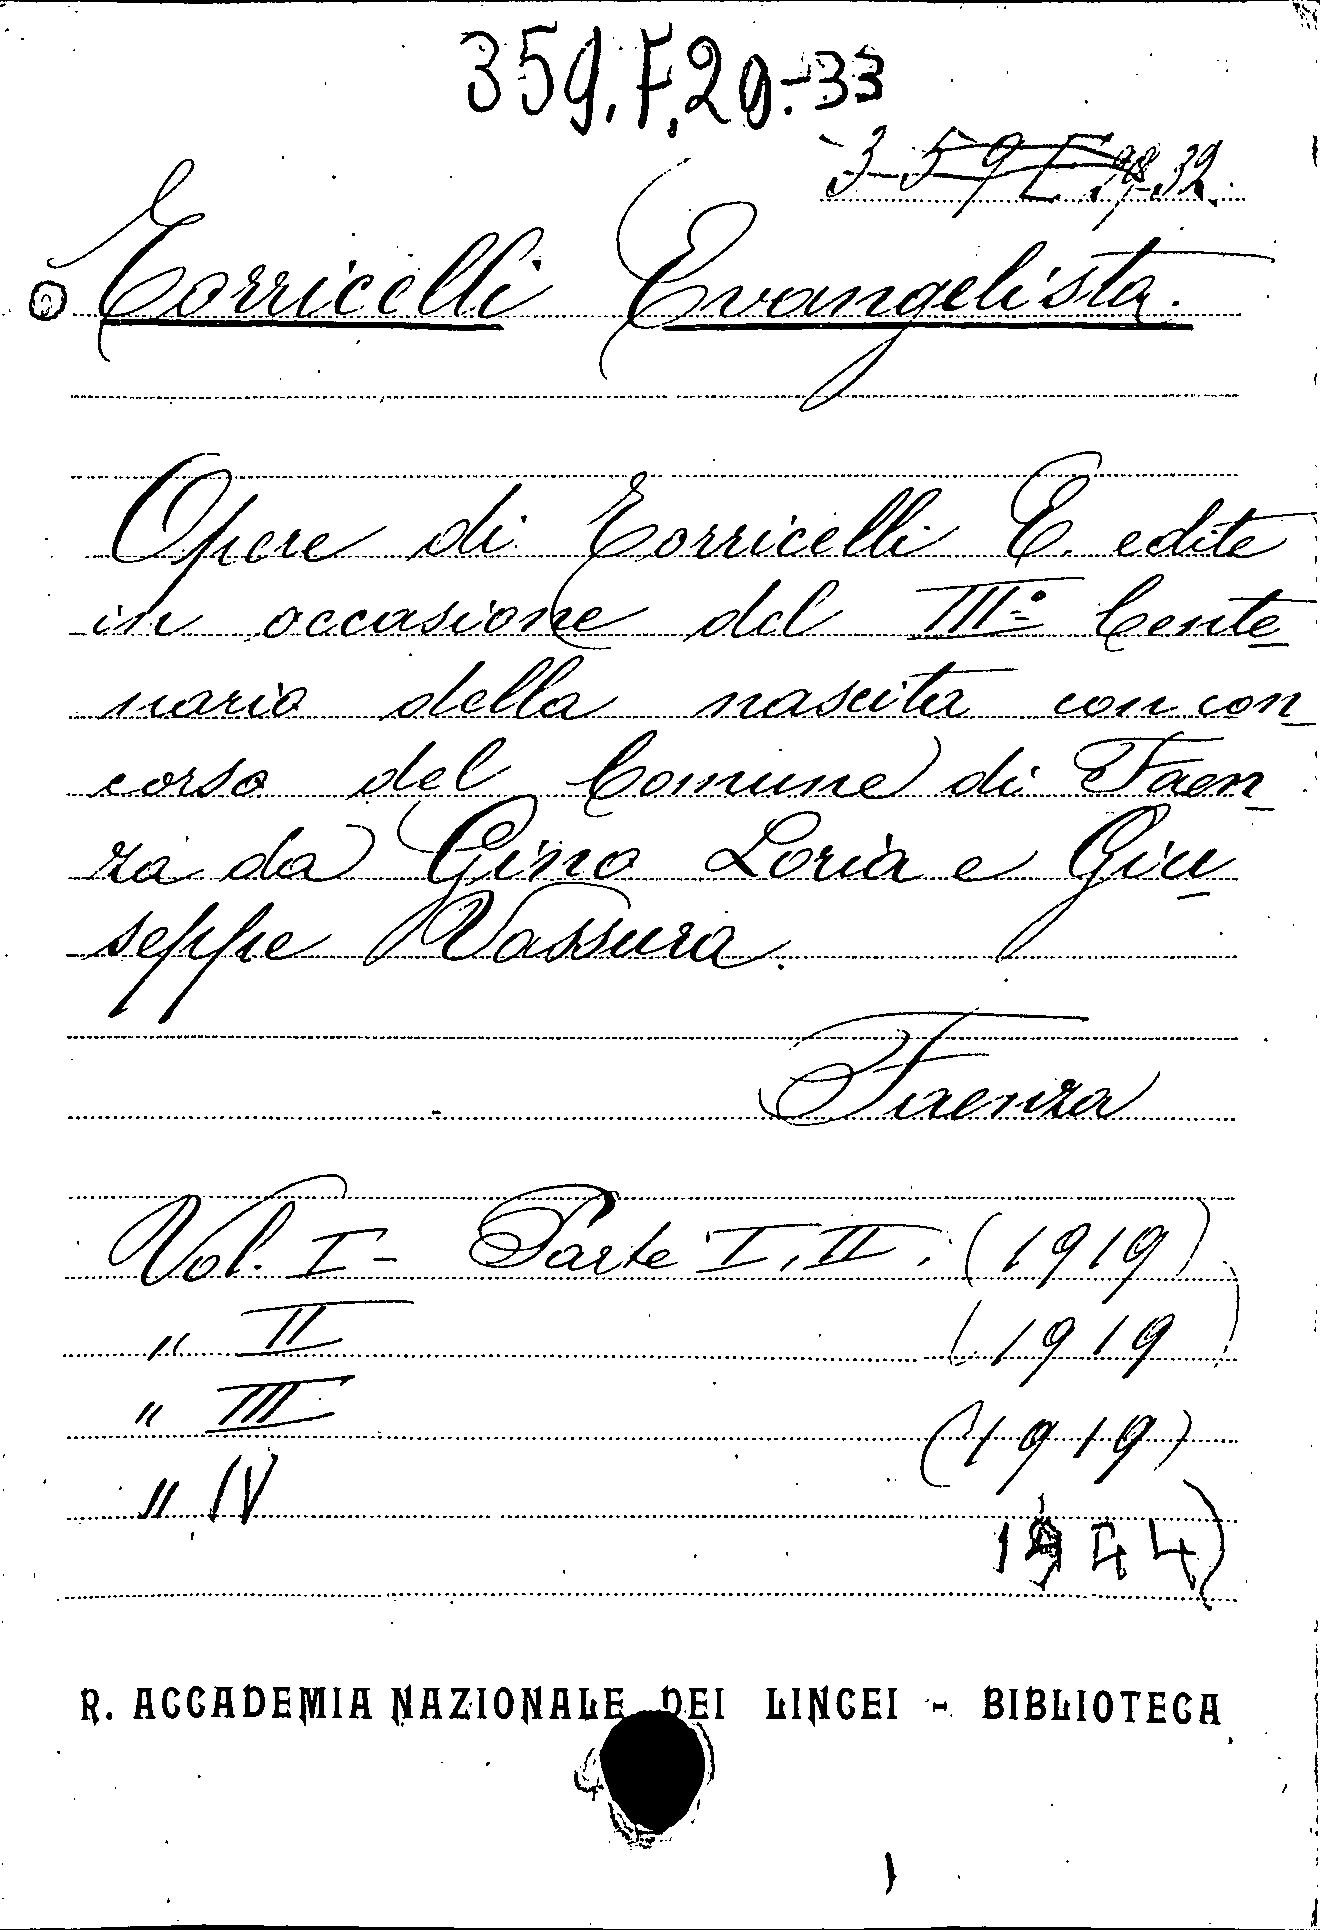 359.F.20.-33
359 E 32.
Torricelli Evangelista.
Opere di Torricelli E. edite
in occasione del IIIº Cente
nario della nascita con con
corso del Comune di Faen
za da Gino Loria e Giu
seppe Vassura.
Faenza
Vol. I - Parte I, II. (1919)
" II (1919)
" III (1919)
" IV
1944)
R. ACCADEMIA NAZIONALE DEI LINCEI - BIBLIOTECA